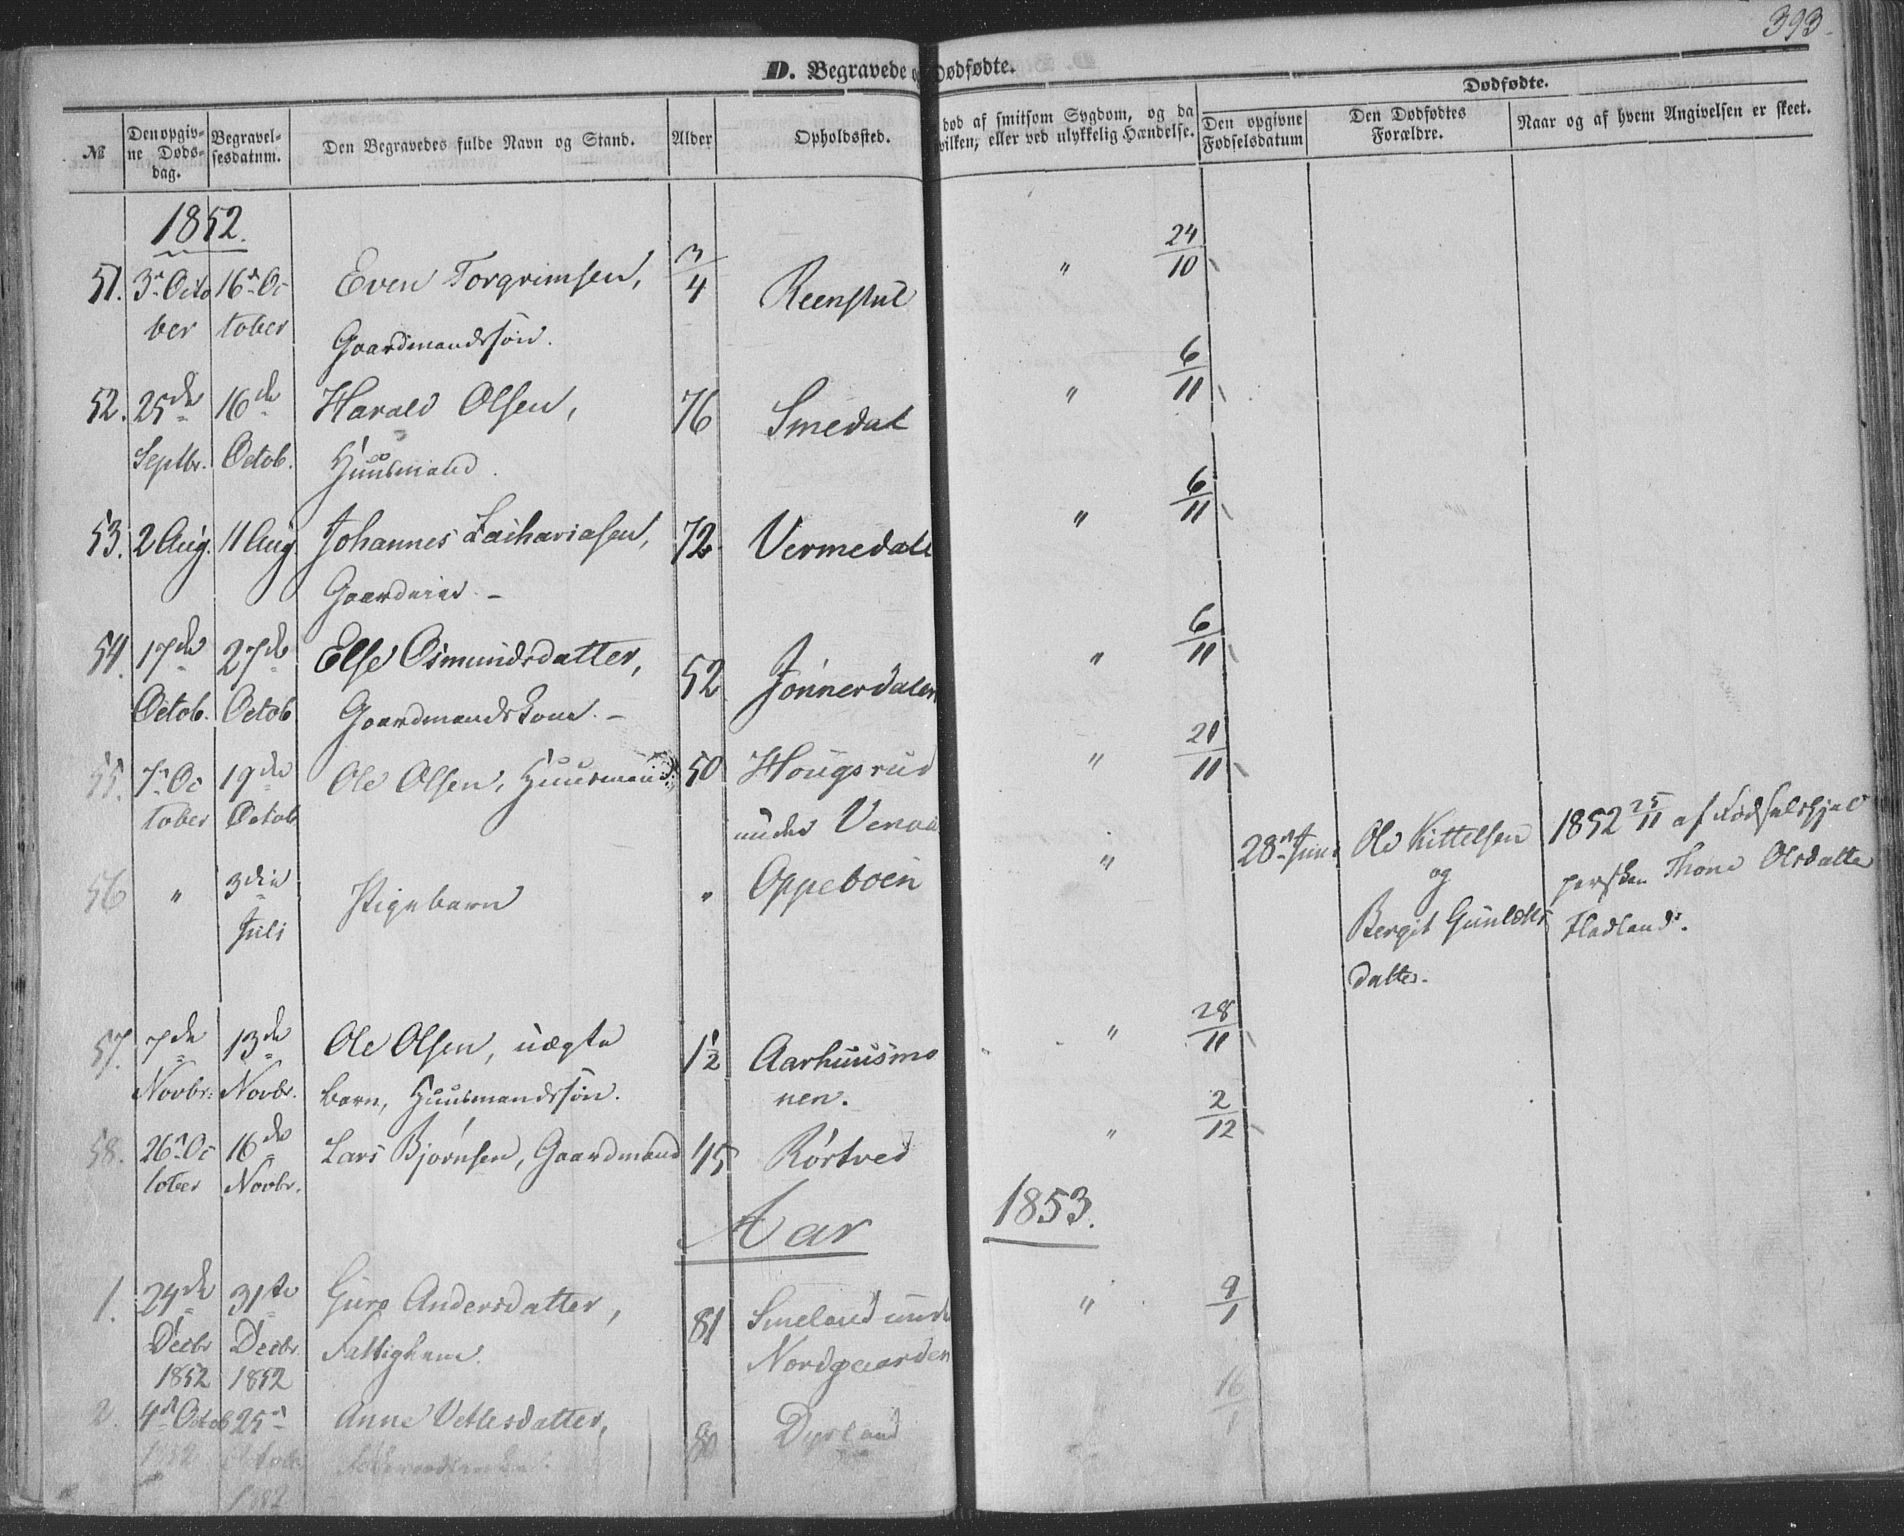 393.
D. Begravede og Dødfødte.
№ | Den opgivne Dødsdag. | Begravelsesdatum. | Den Begravedes fulde Navn og Stand. | Alder | Opholdssted. | død af smitsom Sygdom, og da hvilken; eller ved ulykkelig Hændelse. | Dødfødte. Den opgivne Fødselsdatum | Den Dødfødtes Forældre. | Naar og af hvem Angivelsen er skeet.
1852.
51. | 3die Octo | 16de Oc | Even Torgrimsen, | 3/4 | Reenstul | " | 24/10
ber | tober | Gaardmandssøn.
52. | 25de | 16de | Harald Olsen, | 76 | Smedal | " | 6/11
Septbr. | Octob. | Huusmand.
53. | 2 Aug. | 11 Aug | Johannes Zachariasen, | 72 | Vermedal | " | 6/11
Gaardeier. –
54. | 17de | 27de | Else Osmundsdatter, | 52 | Jønnerdalen | " | 6/11
Octob. | Octob | Gaardmandskone. –
55. | 7de Oc | 19de | Ole Olsen, Huusmand | 50 | Hougsrud | " | 21/11
tober | Octob | under Venaas
56 | " | 3die | Pigebarn | " | Oppeboen | " | 28de Juni | Ole Kittelsen | 1852 25/11 af Fødselshjel
Juli | og | persken Thone Olsdatter
Bergit Gunleks | Fladland.
datter.
57. | 7de | 13de | Ole Olsen, uægte | 1½ | Aarhuusmo | " | 28/11
Novbr. | Novbr. | barn, Huusmandssøn. | nen.
58. | 26de Oc | 16de | Lars Bjørnsen, Gaardmand | 45 | Rørtved | " | 2/12
tober | Novbr.
Aar 1853.
1. | 24de | 31te | Guro Andersdatter, | 81 | Smeland under | " | 9/1
Decbr | Decbr. | Fattiglem. | Nordgaarden
1852 | 1852
2. | 4de Octob | 25de | Anne Vetlesdatter, | 80 | Dyrland | 16/1
1852 | October
1852